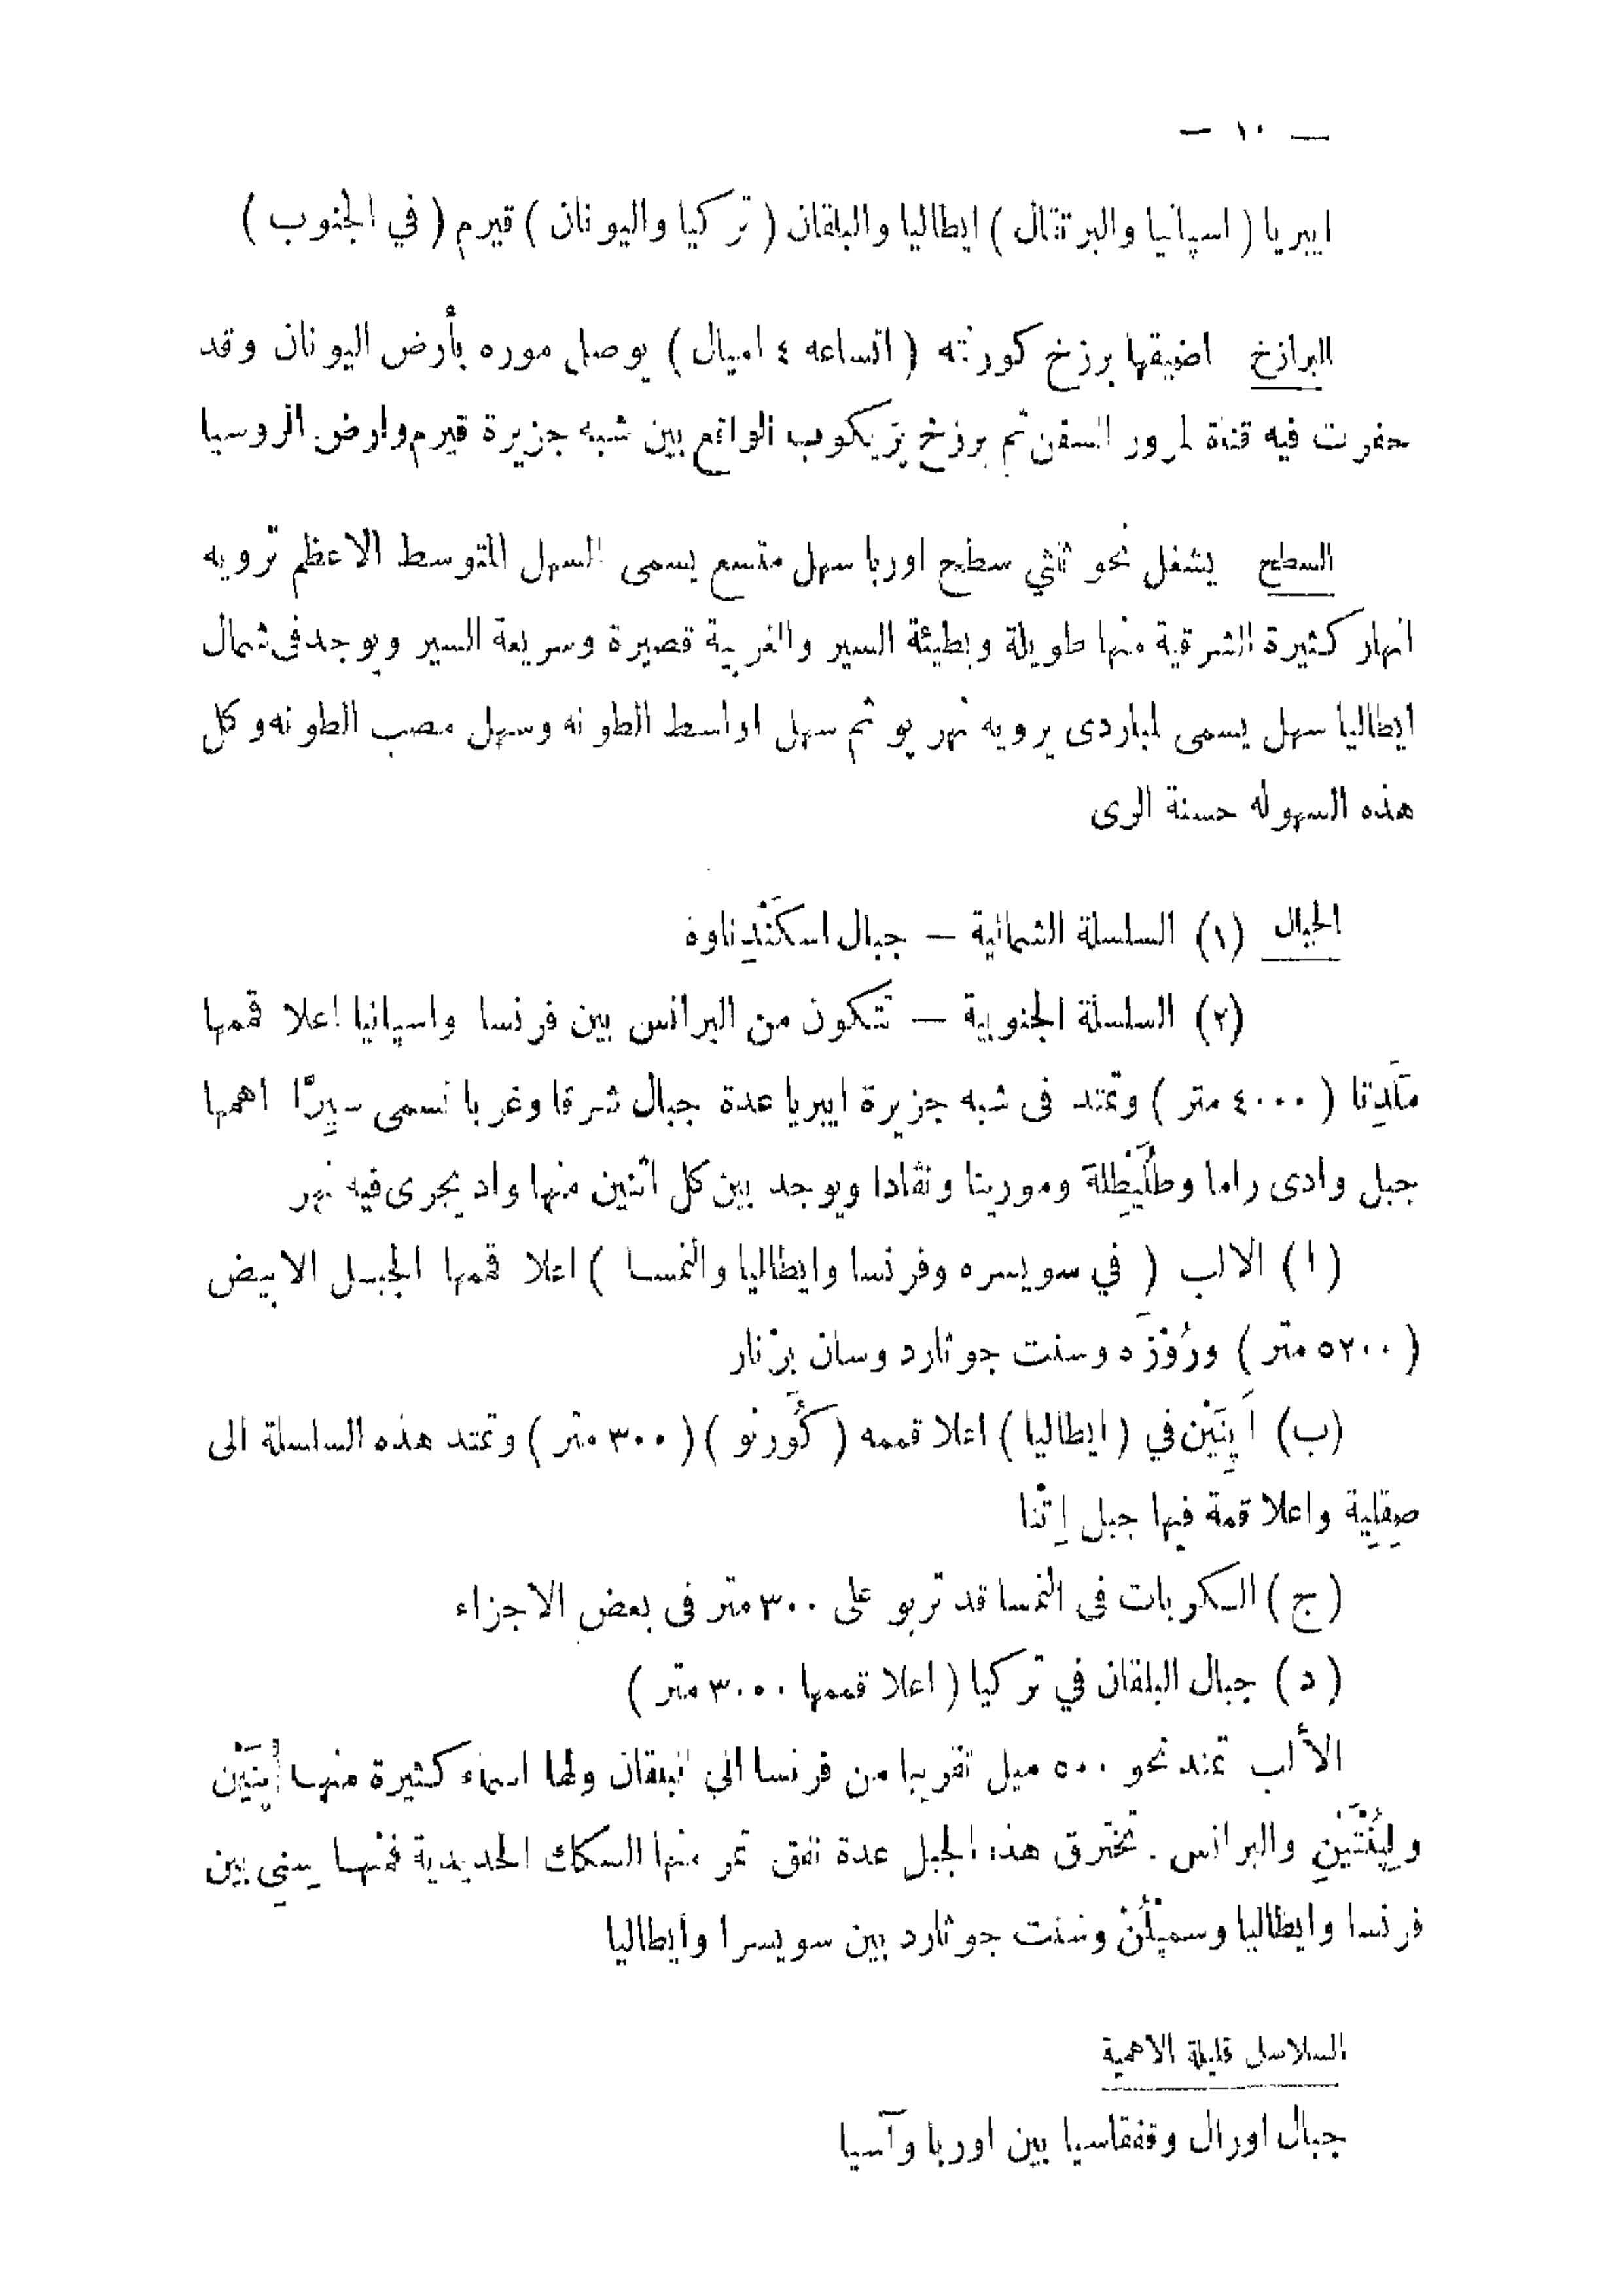 — ١٠ —
ايبريا ( اسپانيا والبرتقال ) ايطاليا والبلقان ( تركيا واليونان ) قيرم ( في الجنوب )
البرازخ اضيقها برزخ كورنته ( اتساعه ٤ اميال ) يوصل موره بأرض اليونان وقد
حفرت فيه قناة لمرور السفن ثم برزخ پريكوب الواقع بين شبه جزيرة قيرم وارض الروسيا
السطح يشغل نحو ثلثي سطح اوربا سهل متسع يسمى السهل المتوسط الاعظم ترويه
انهار كثيرة الشرقية منها طويلة وبطيئة السير والغربية قصيرة وسريعة السير ويوجد فى شمال
ايطاليا سهل يسمى لمباردى يرويه نهر پو ثم سهل اواسط الطونه وسهل مصب الطونه وكل
هذه السهوله حسنة الرى
الجبال (١) السلسلة الشمالية — جبال اسكَنْدِناوه
(٢) السلسلة الجنوبية — تتكون من البرانس بين فرنسا واسپانيا اعلا قممها
مَلَدِتا ( ٤٠٠٠ متر ) وتمتد فى شبه جزيرة ايبريا عدة جبال شرقا وغربا تسمى سيِرّا اهمها
جبل وادى راما وطُلَيْطِلة ومورينا ونڤادا ويوجد بين كل اثنين منها واد يجرى فيه نهر
( ا ) الالب ( في سويسره وفرنسا وايطاليا والنمسا ) اعلا قممها الجبل الابيض
( ٥٢٠٠ متر ) ورُوْزَه وسنت جوثارد وسان برْنار
(ب) اَپِنَيْن في ( ايطاليا ) اعلا قممه ( كُورنْو ) ( ٣٠٠ متر ) وتمتد هذه السلسلة الى
صِقِلِية واعلا قمة فيها جبل اِتْنا
( ج ) السكربات فى النمسا قد تربو على ٣٠٠ متر فى بعض الاجزاء
( د ) جبال البلقان في تركيا ( اعلا قممها ٣٠٠٠ متر )
الألب تمتد نحو ٥٠٠ ميل تقريبا من فرنسا الي البلقان ولها اسماء كثيرة منها
والبرانس . تخترق هذه الجبل عدة نفق تمر منها السكك الحديدية فمنها سِنِي بين
فرنسا وايطاليا وسمپْلُنْ وسنت جوثارد بين سويسرا وايطاليا
السلاسل قليلة الاهمية
جبال اورال وقفقاسيا بين اوربا وآسيا